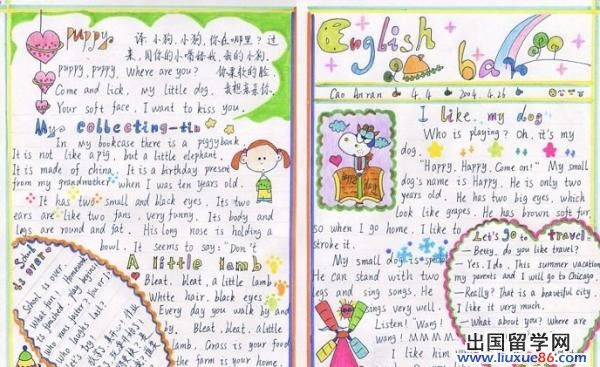 Puppy
译:小狗,小狗,你在哪里?过
来,用你的小嘴舔我,我的小狗.
puppy, puppy, Where are you? 你柔软的脸,
Come and lick, my little dog. 我想亲亲你.
Your soft face, I want to kiss you.
My collecting-tin
In my bookcase there is a piggyback
It is not like a pig, but a little elephant.
It is made of china. It is a birthday present
from my grandmother when I was ten years old.
It has two small and black eyes. Its two
ears are like two fans, very funny. Its body and
legs are round and fat. His long nose is holding
a bowl. It seems to say: "Don't
School is over
School is over
What fun!
Homework
is finished
Play begins
Who runs faster? You or I?
Who laughs last?
A little lamb
Bleat, Bleat, a little lamb
White hair, black eyes.
Every day you walk by and
by. Bleat, Bleat, a little
lamb. Grass is your food
the farm is your home.
English
Cao Anran 4.4 2004.4.26
I like my dog
Who is playing? Oh, it's my
dog.
"Happy, Happy, Come on!" My small
dog's name is Happy. He is only two
years old. He has two big eyes, which
look like grapes. He has brown soft fur,
so when I go home. I like to
stroke it.
My small dog is special
He can stand with two
legs and sing songs. He
sings very well.
Listen! "Wang!
Wang!
I like him
Let's go to travel.
— Betty, do you like travel?
— Yes, I do. This summer vacation
my parents and I will go to Chicago.
— Really? That is a beautiful city.
I like it very much.
— What about you? Where are
出国留学网
www.liuxue86.com